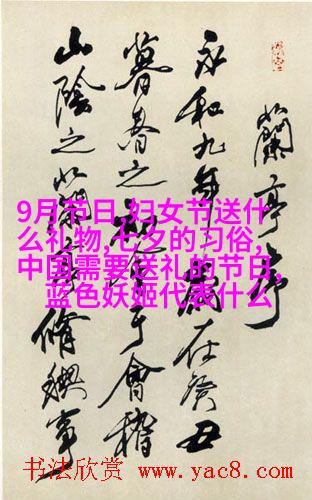 蘭亭序
永和九年歲在癸丑
暮春之于會稽
山陰之蘭亭脩禊事
9月节日,妇女节送什
么礼物,七夕的习俗,
中国需要送礼的节日,
蓝色妖姬代表什么
书法欣赏 www.yac8.com